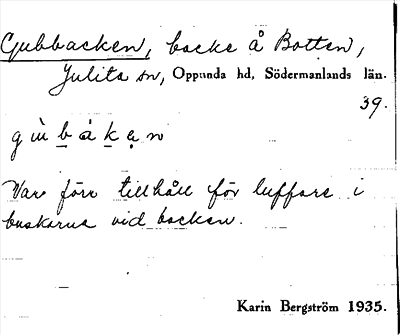 Gubbacken, backe å Botten,
Julita sn, Oppunda hd, Södermanlands län.
39.
gù̀bákęn
Var förr tillhåll för luffare i
buskarna vid backen.
Karin Bergström 1935.